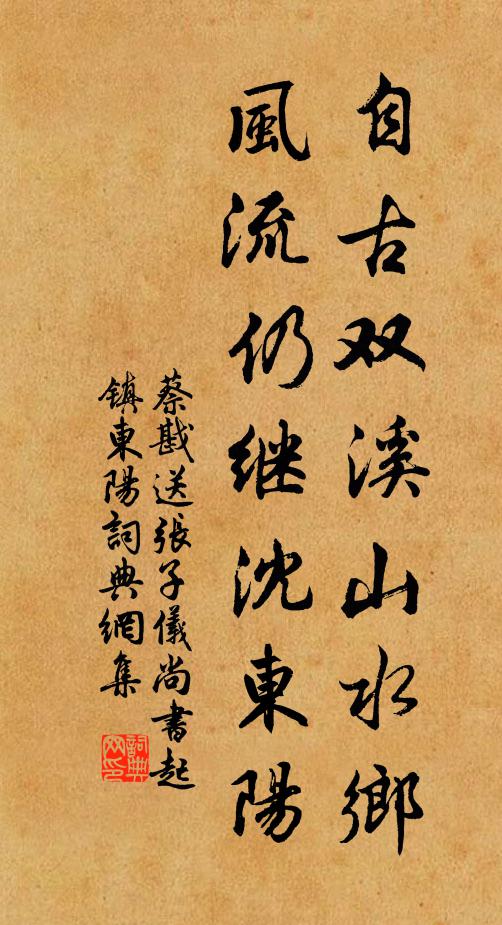 自古双溪山水鄉
風流仍继沈東陽
蔡戡送張子儀尚書起
镇東陽詞典網集
詞典
网印